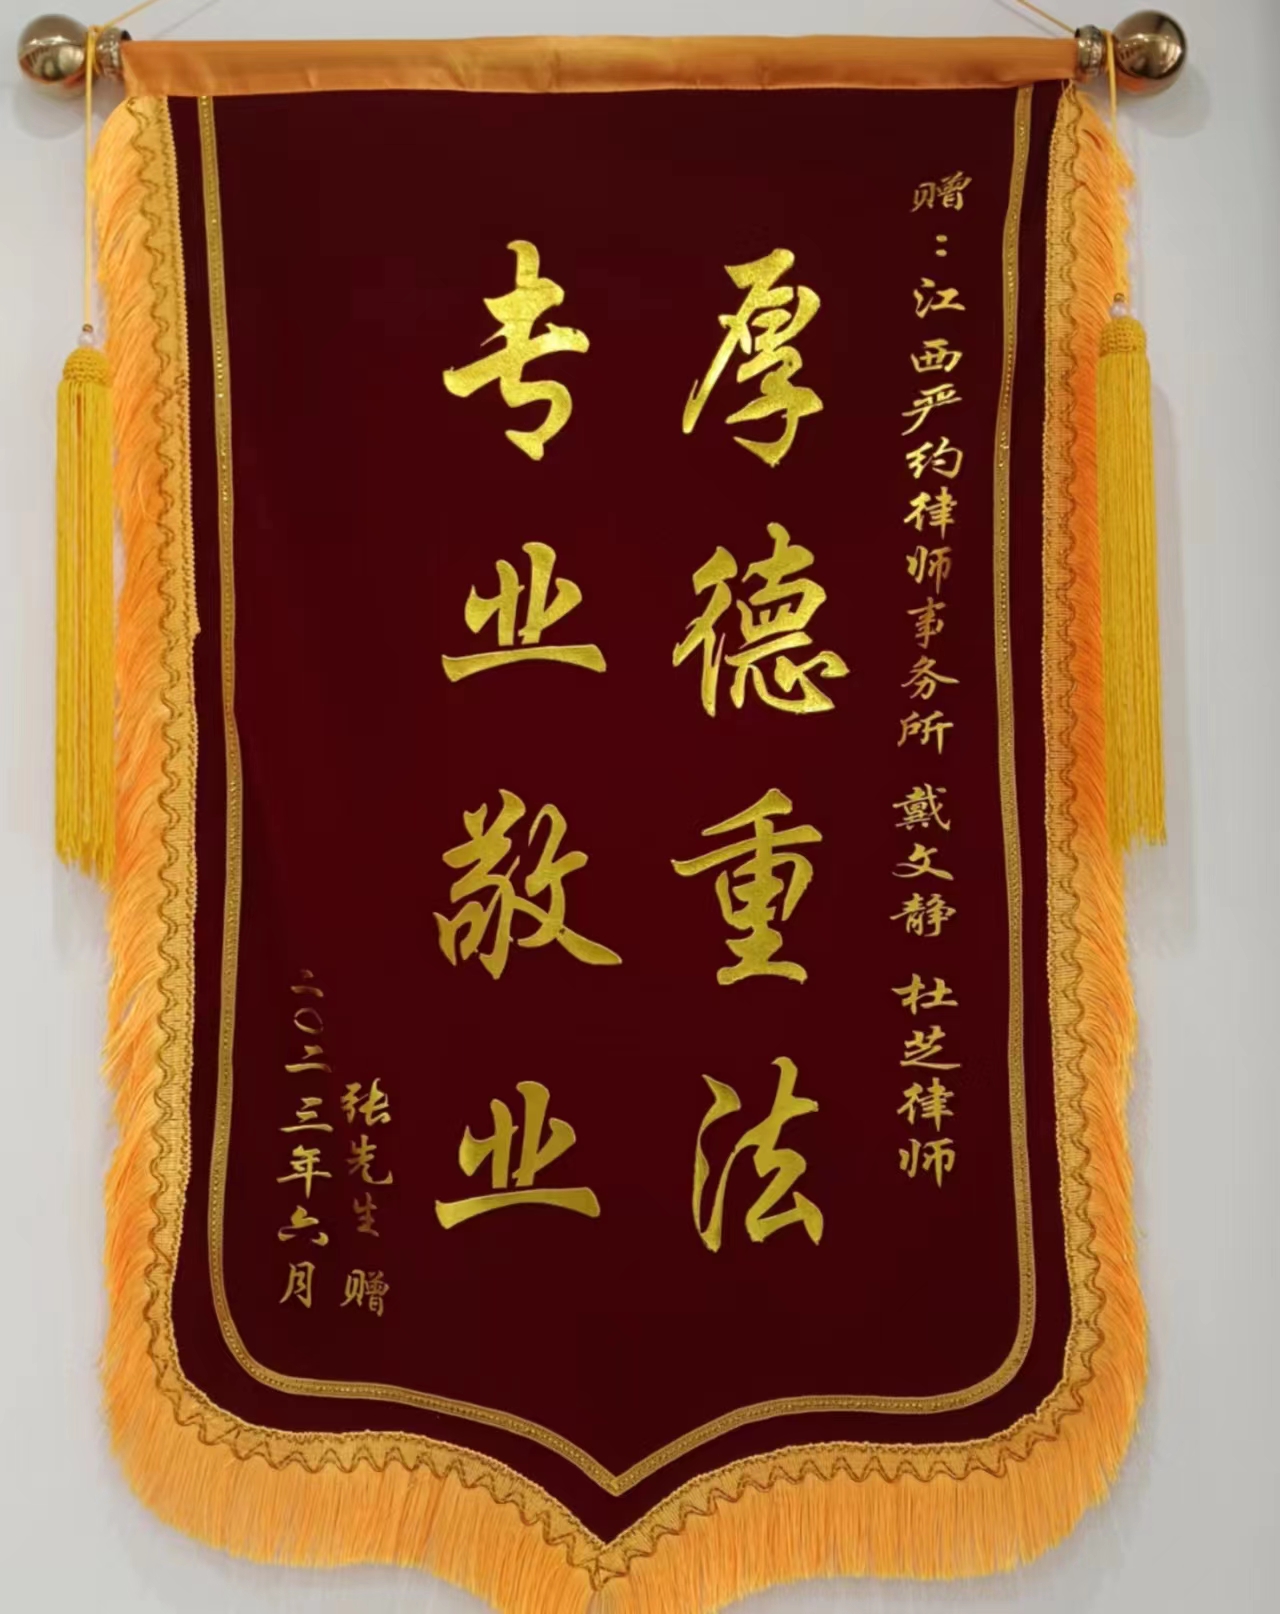 赠：江西严约律师事务所 戴文静 杜芝律师
厚德重法
专业敬业
张先生 赠
二〇二三年六月